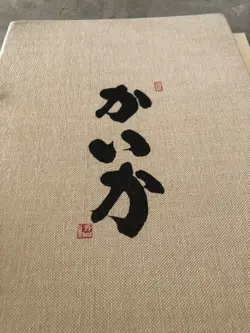 かいか